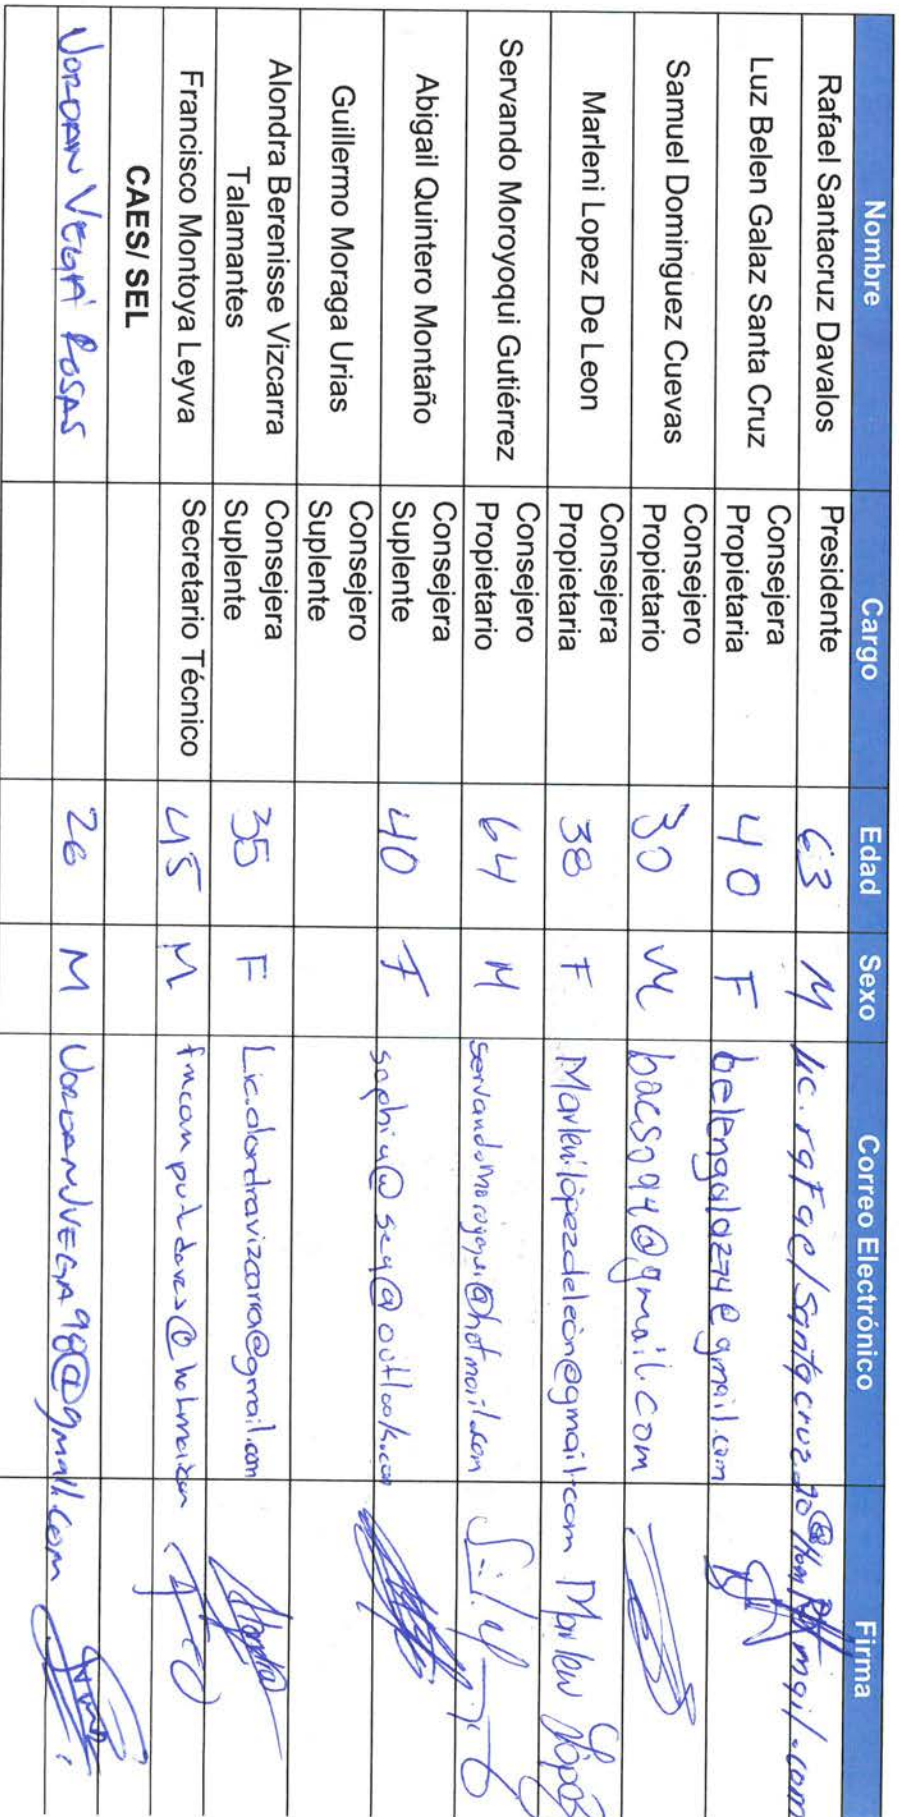 Nombre Cargo Edad Sexo Correo Electrónico Firma
Rafael Santacruz Davalos Presidente 63 M
Luz Belen Galaz Santa Cruz Consejera Propietaria 40 F belengalaz74@gmail.com
Samuel Dominguez Cuevas Consejero Propietario 30 M bacso94@gmail.com
Marleni Lopez De Leon Consejera Propietaria 38 F Marlenilópezdeleón@gmail.com Marleni López
Servando Moroyoqui Gutiérrez Consejero Propietario 64 M servandomoroyoqui@hotmail.com
Abigail Quintero Montaño Consejera Suplente 40 F
Guillermo Moraga Urias Consejero Suplente
Alondra Berenisse Vizcarra Talamantes Consejera Suplente 35 F Lic.alondravizcarra@gmail.com
Francisco Montoya Leyva Secretario Técnico 45 M
CAES/ SEL
JORDAN VEGA ROSAS 26 M JORDANVEGA98@gmail.com